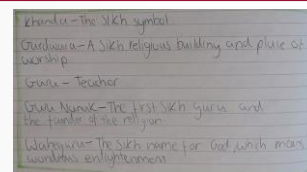 Khanda - The Sikh symbol
Gurdwara - A Sikh religious building and place of
worship
Guru - Teacher
Guru Nanak - The first Sikh guru and
the founder of the religion
Waheguru - The Sikh name for God, which means
wondrous enlightenment